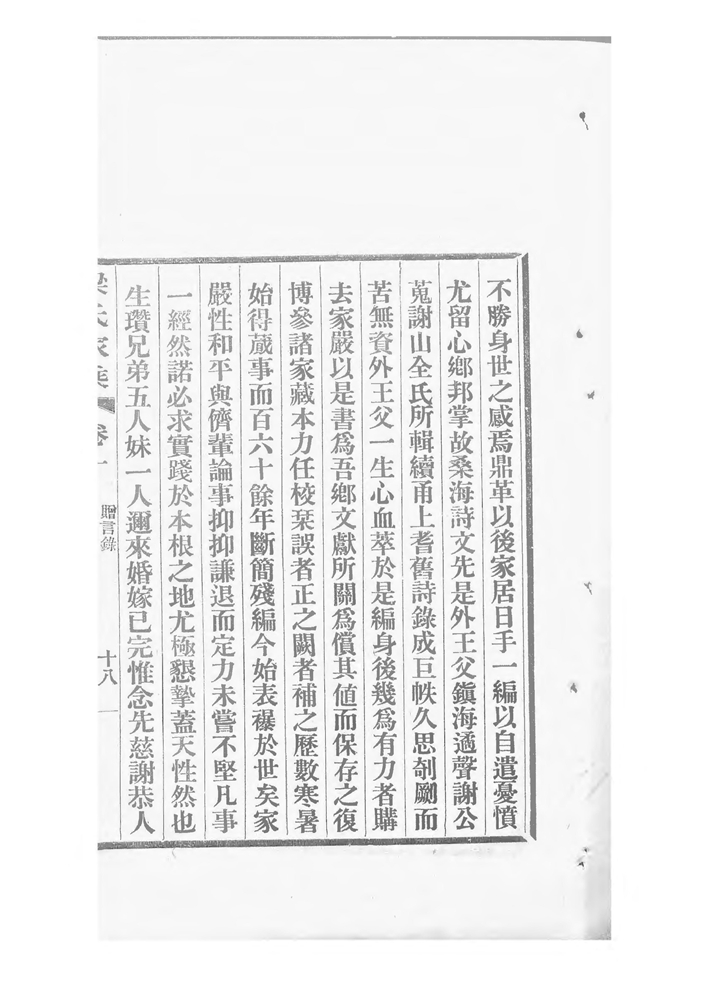 不勝身世之感焉鼎革以後家居日手一編以自遣憂憤
尤留心鄉邦掌故桑海詩文先是外王父鎭海遹聲謝公
蒐謝山全氏所輯續甬上耆舊詩錄成巨帙久思剞劂而
苦無資外王父一生心血萃於是編身後幾爲有力者購
去家嚴以是書爲吾鄉文獻所關爲償其値而保存之復
博參諸家藏本力任校栞誤者正之闕者補之歷數寒暑
始得蕆事而百六十餘年斷簡殘編今始表襮於世矣家
嚴性和平與儕輩論事抑抑謙退而定力未嘗不堅凡事
一經然諾必求實踐於本根之地尤極懇摯蓋天性然也
生瓚兄弟五人妹一人邇來婚嫁已完惟念先慈謝恭人
梁氏家乘
卷一
贈言錄
十八